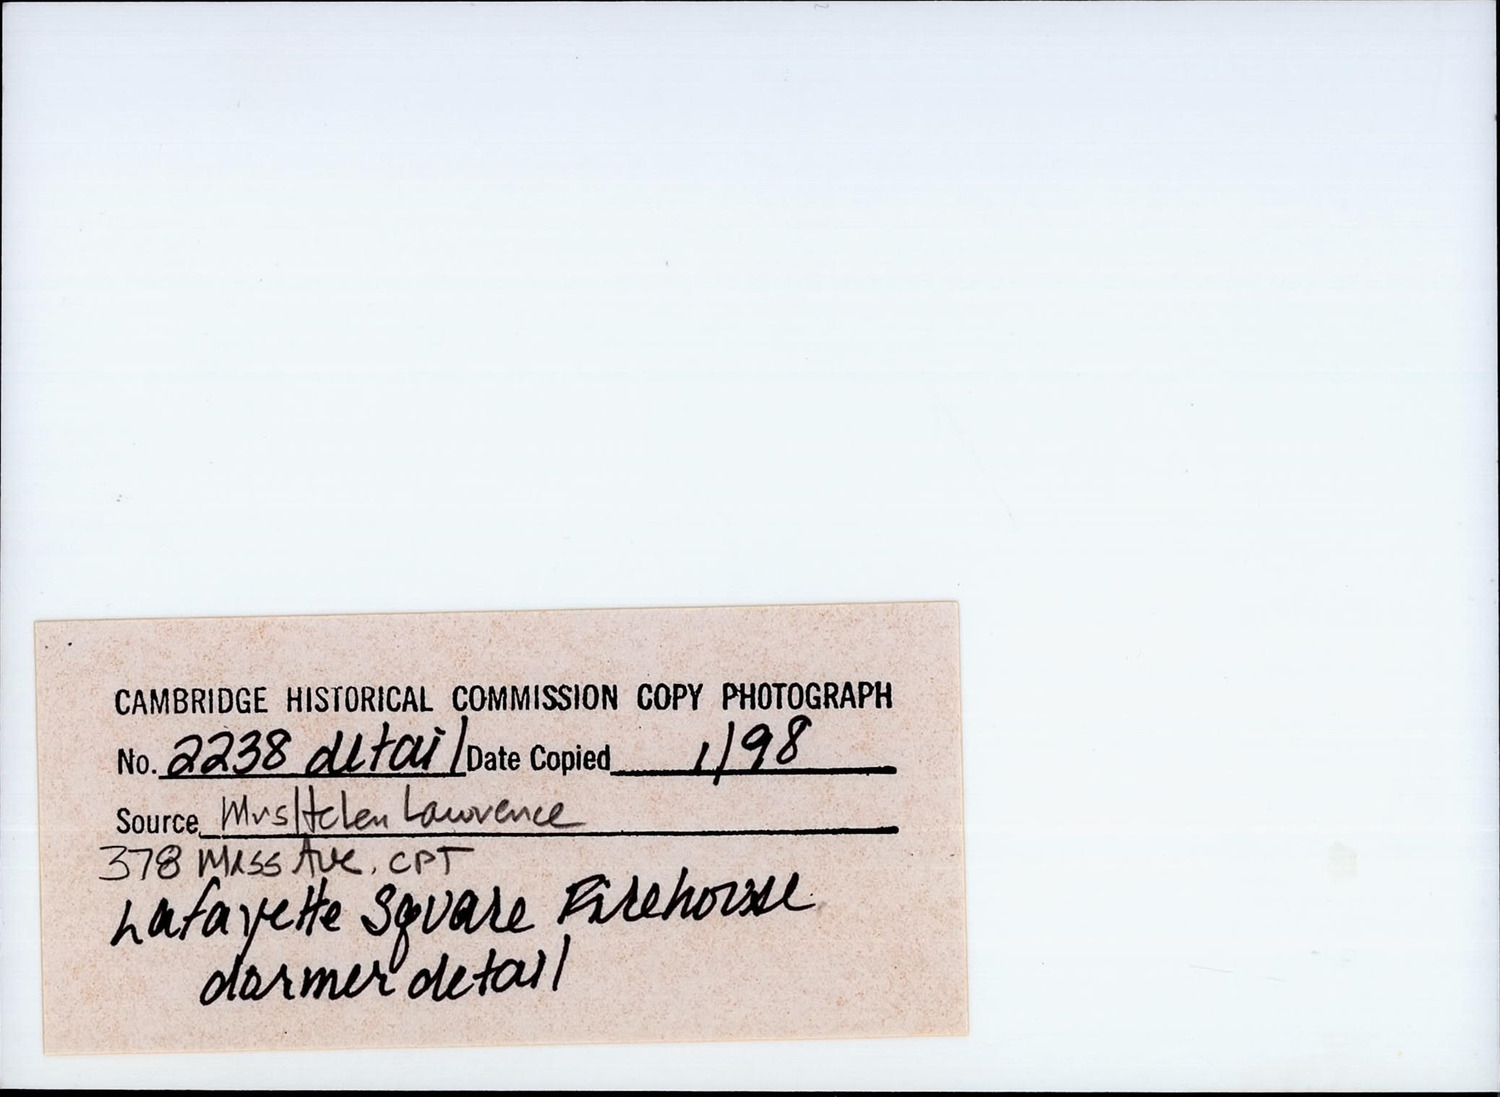 CAMBRIDGE HISTORICAL COMMISSION COPY PHOTOGRAPH
No. 2238 detail Date Copied 1/98
Source Mrs Helen Lawrence
378 Mass Ave, CPT
Lafayette Square Firehouse
dormer detail